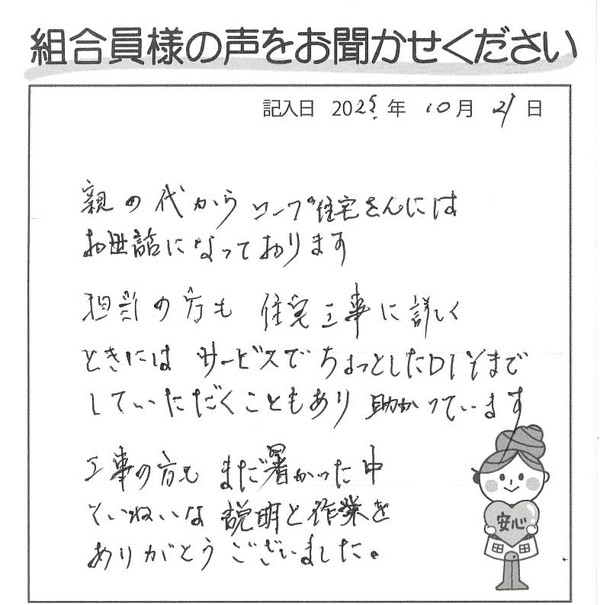 組合員様の声をお聞かせください
記入日 2025年 10月 21日
親の代から コープ住宅さんには
お世話になっております
担当の方も 住宅工事に詳しく
ときには サービスでちょっとしたDIYまで
していただくこともあり 助かっています
工事の方も まだ暑かった中
ていねいな 説明と作業を
ありがとうございました。
安心